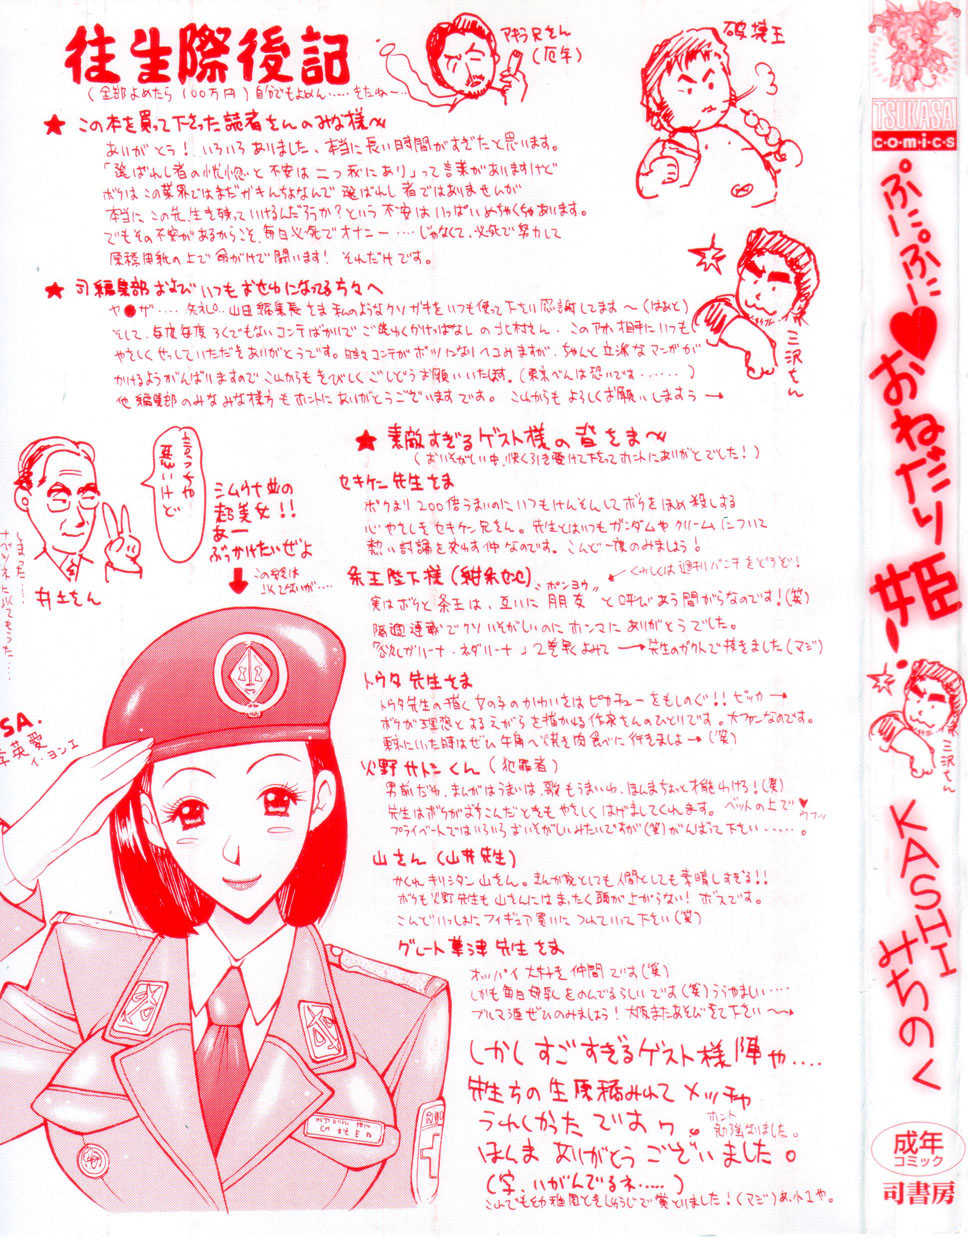 往生際後記
(全部よめたら100万円)自分でもよめん.....きたね〜...
アキラ兄さん
(厄年)
破壊王
★この本を買って下さった読者さんのみな様へ
ありがとう!いろいろありました、本当に長い時間がすぎたと思います。
「選ばれし者の恍惚と不安は二つ我にあり」って言葉がありますけど
ボクはこの業界ではまだガキんちょなんで選ばれし者ではありませんが
本当に、この先、生き残っていけるんだろうか?という不安はいっぱいめちゃくちゃあります。
でもその不安があるからこそ、毎日必死でオナニー....じゃなくて、必死で努力して
原稿用紙の上で命がけで闘います!それだけです。
★司編集部およびいつもおせわになってる方々へ
ヤ●ザ....失礼、山田編集長さま
いつも使って下さい感謝してます〜(はぁと)
そして、毎度毎度ろくでもないコンテばかりでご迷わくかけっぱなしの
やさしくせっしていただきありがとうです。時々コンテがボツになりヘコみますが、ちゃんと立派なマンガが
かけるようがんばりますのでこれからもきびしくごしどうお願いいたします。(東京べんは恐いです......)
他編集部のみなみな様方もホントにありがとうございますです。これからもよろしくお願いしますぅ→
三沢さん
★素敵すぎるゲスト様の皆さま〜
(おいそがしい中、快く引き受けて下さってホントにありがとでした!)
セキケン先生さま
ボクより200倍うまいのにいつもけんそんしてボクをほめ殺しする
心やさしきセキケン兄さん。先生とはいつもガンダムやクリームについて
熱い討論を交わす仲なのです。こんど一度のみましょう!
条王陛下様(紺条せの)
くわしくは週刊パンチをどうぞ!
実はボクと条王は、互いに朋友と呼びあう間がらなのです!(笑)
ポンヨウ
隔週連載でクソいそがしいのにホンマにありがとうでした。
「欲しがリーナ・ネダリーナ」2巻早くよみて→先生のガクトで抜きました(マジ)
トウタ先生さま
トウタ先生の描く女の子のかわいさはピカチューをもしのぐ!!ピッカ→
ボクが理想とするえがおを描かれる作家さんのひとりです。大ファンなのです。
東京にいた時はぜひ牛角へ焼き肉食べに行きましょ→(笑)
火野サトシくん(犯罪者)
男前だわ、まんがはうまいは、歌もうまいわ、ほんまちょっと才能わける!(笑)
先生はボクがおちこんだときもやさしくはげましてくれます。ベットの上で♥ウフッ
プライベートではいろいろおいそがしいみたいですが(笑)がんばって下さい.....。
山さん(山井先生)
かくれキリシタン山さん。まんが家としても人間としても素晴しすぎる!!
ボクも火野先生も山さんにはまったく頭が上がらない!ボスです。
こんどいっしょにフィギュア買いにつれていって下さい(笑)
グレート草津先生さま
オッパイ大好き仲間です(笑)
しかも毎日母乳をのんでるらしいです(笑)うらやましい....
ブルマ酒ぜひのみましょう!大阪またあそびきて下さい〜→
しかしすごすぎるゲスト様陣や....
先生ちの生原稿みれてメッチャ
うれしかったですゥ。
ホント勉強なりました。
ほんまありがとうございました。
(字、いがんでるネ.....)
これでも幼稚園ときしゅうじで賞とりました!(マジ)あ、小1や。
言っちゃ
悪いけど
井土さん
シムラけ並の
超美女!!
あー
ぶっかけたいぜよ
SA.
李英愛
イ・ヨンエ
TSUKASA
comics
ぷにぷに♥おねだり姫!
三沢さん
KASHIみちのく
成年
コミック
司書房